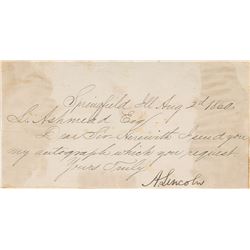 Springfield Ill Aug 2d 1860
L. Ashmead Esq
Dear Sir Herewith I send you
my autograph which you request
Yours Truly
A. Lincoln